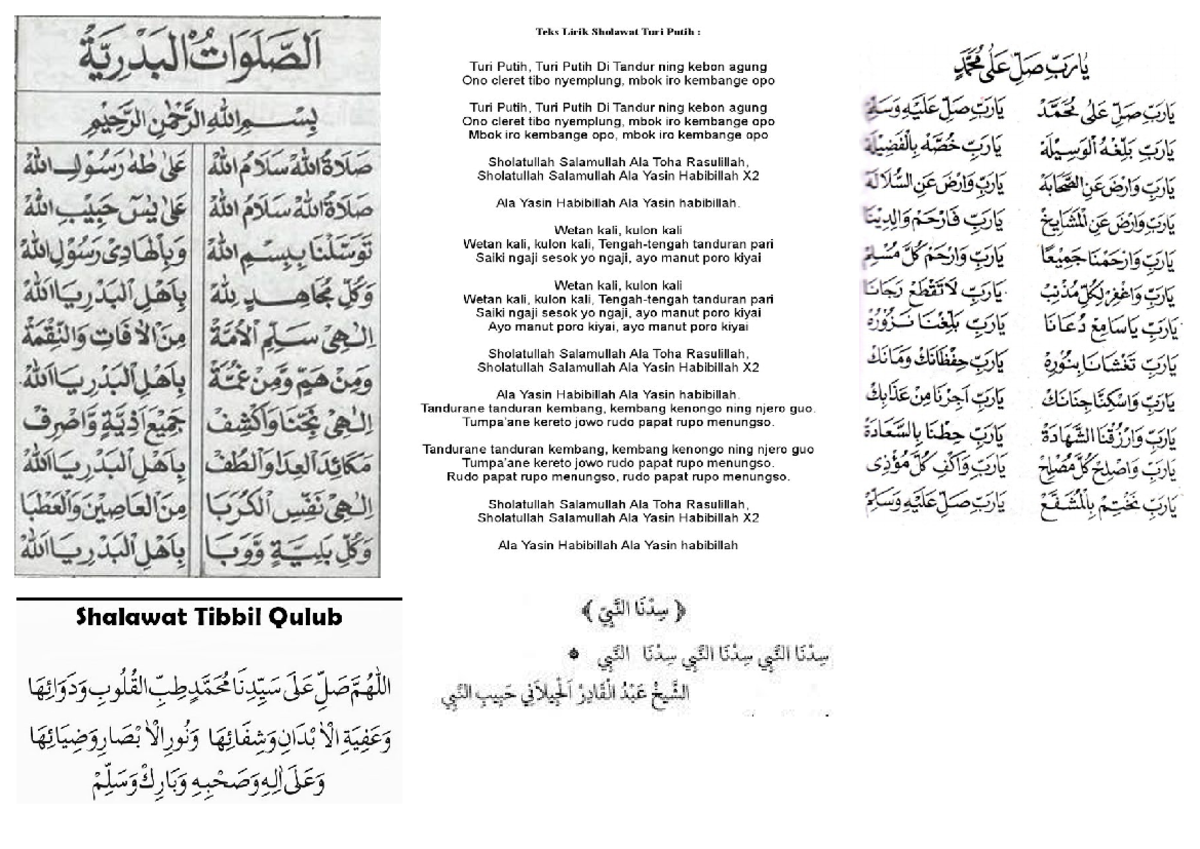 اَلصَّلَوَاتُ الْبَدْرِيَّةُ
بِسْمِ اللهِ الرَّحْمٰنِ الرَّحِيْمِ
صَلَاةُ اللهْ سَلَامُ اللهْ عَلٰى طٰهٰ رَسُوْلِ اللهْ
صَلَاةُ اللهْ سَلَامُ اللهْ عَلٰى يٰسٓ حَبِيْبِ اللهْ
تَوَسَّلْنَا بِبِسْمِ اللهْ وَبِالْهَادِيْ رَسُوْلِ اللهْ
وَكُلِّ مُجَاهِدٍ لِلّٰهْ بِاَهْلِ الْبَدْرِ يَا اَللهْ
اِلٰهِيْ سَلِّمِ الْاُمَّةْ مِنَ الْاٰفَاتِ وَالنِّقْمَةْ
وَمِنْ هَمٍّ وَّمِنْ غُمَّةْ بِاَهْلِ الْبَدْرِ يَا اَللهْ
اِلٰهِيْ نَجِّنَا وَاكْشِفْ جَمِيْعَ اَذِيَّةٍ وَّاصْرِفْ
مَكَائِدَ الْعِدَا وَالْطُفْ بِاَهْلِ الْبَدْرِ يَا اَللهْ
اِلٰهِيْ نَفِّسِ الْكُرَبَا مِنَ الْعَاصِيْنَ وَالْعَطْبَا
وَكُلِّ بَلِيَّةٍ وَّوَبَا بِاَهْلِ الْبَدْرِ يَا اَللهْ
Shalawat Tibbil Qulub
اَللّٰهُمَّ صَلِّ عَلَى سَيِّدِنَا مُحَمَّدٍ طِبِّ الْقُلُوبِ وَدَوَائِهَا
وَعَفِيَةِ الْاَبْدَانِ وَشِفَائِهَا وَنُورِ الْاَبْصَارِ وَضِيَائِهَا
وَعَلَى اٰلِهِ وَصَحْبِهِ وَبَارِكْ وَسَلِّمْ
Teks Lirik Sholawat Turi Putih :
Turi Putih, Turi Putih Di Tandur ning kebon agung
Ono cleret tibo nyemplung, mbok iro kembange opo
Turi Putih, Turi Putih Di Tandur ning kebon agung
Ono cleret tibo nyemplung, mbok iro kembange opo
Mbok iro kembange opo, mbok iro kembange opo
Sholatullah Salamullah Ala Toha Rasulillah,
Sholatullah Salamullah Ala Yasin Habibillah X2
Ala Yasin Habibillah Ala Yasin habibillah.
Wetan kali, kulon kali
Wetan kali, kulon kali, Tengah-tengah tanduran pari
Saiki ngaji sesok yo ngaji, ayo manut poro kiyai
Wetan kali, kulon kali
Wetan kali, kulon kali, Tengah-tengah tanduran pari
Saiki ngaji sesok yo ngaji, ayo manut poro kiyai
Ayo manut poro kiyai, ayo manut poro kiyai
Sholatullah Salamullah Ala Toha Rasulillah,
Sholatullah Salamullah Ala Yasin Habibillah X2
Ala Yasin Habibillah Ala Yasin habibillah.
Tandurane tanduran kembang, kembang kenongo ning njero guo.
Tumpa'ane kereto jowo rudo papat rupo menungso.
Tandurane tanduran kembang, kembang kenongo ning njero guo
Tumpa'ane kereto jowo rudo papat rupo menungso.
Rudo papat rupo menungso, rudo papat rupo menungso.
Sholatullah Salamullah Ala Toha Rasulillah,
Sholatullah Salamullah Ala Yasin Habibillah X2
Ala Yasin Habibillah Ala Yasin habibillah
﴿ سِدْنَا النَّبِيّ ﴾
سِدْنَا النَّبِي سِدْنَا النَّبِي سِدْنَا النَّبِي *
الشَّيْخُ عَبْدُ الْقَادِرْ اَلْجِيلَانِي حَبِيبِ النَّبِي
يَا رَبِّ صَلِّ عَلَى مُحَمَّدٍ
يَارَبِّ صَلِّ عَلَى مُحَمَّدْ يَارَبِّ صَلِّ عَلَيْهِ وَسَلِّمْ
يَارَبِّ بَلِّغْهُ الْوَسِيْلَةْ يَارَبِّ خُصَّهْ بِالْفَضِيْلَةْ
يَارَبِّ وَارْضَ عَنِ الصَّحَابَةْ يَارَبِّ وَارْضَ عَنِ السُّلَالَةْ
يَارَبِّ وَارْضَ عَنِ الْمَشَايِخْ يَارَبِّ فَارْحَمْ وَالِدِيْنَا
يَارَبِّ وَارْحَمْنَا جَمِيْعًا يَارَبِّ وَارْحَمْ كُلَّ مُسْلِمْ
يَارَبِّ وَاغْفِرْ لِكُلِّ مُذْنِبْ يَارَبِّ لَا تَقْطَعْ رَجَانَا
يَارَبِّ يَا سَامِعْ دُعَانَا يَارَبِّ بَلِّغْنَا نَزُوْرُهْ
يَارَبِّ تَغْشَانَا بِنُوْرِهْ يَارَبِّ حِفْظَانَكْ وَمَانَكْ
يَارَبِّ وَاسْكِنَّا جِنَانَكْ يَارَبِّ اَجِرْنَا مِنْ عَذَابِكْ
يَارَبِّ وَارْزُقْنَا الشَّهَادَةْ يَارَبِّ حِطْنَا بِالسَّعَادَةْ
يَارَبِّ وَاصْلِحْ كُلَّ مُصْلِحْ يَارَبِّ وَاكْفِ كُلَّ مُؤْذِيْ
يَارَبِّ نَخْتِمْ بِالْمُشَفَّعْ يَارَبِّ صَلِّ عَلَيْهِ وَسَلِّمْ